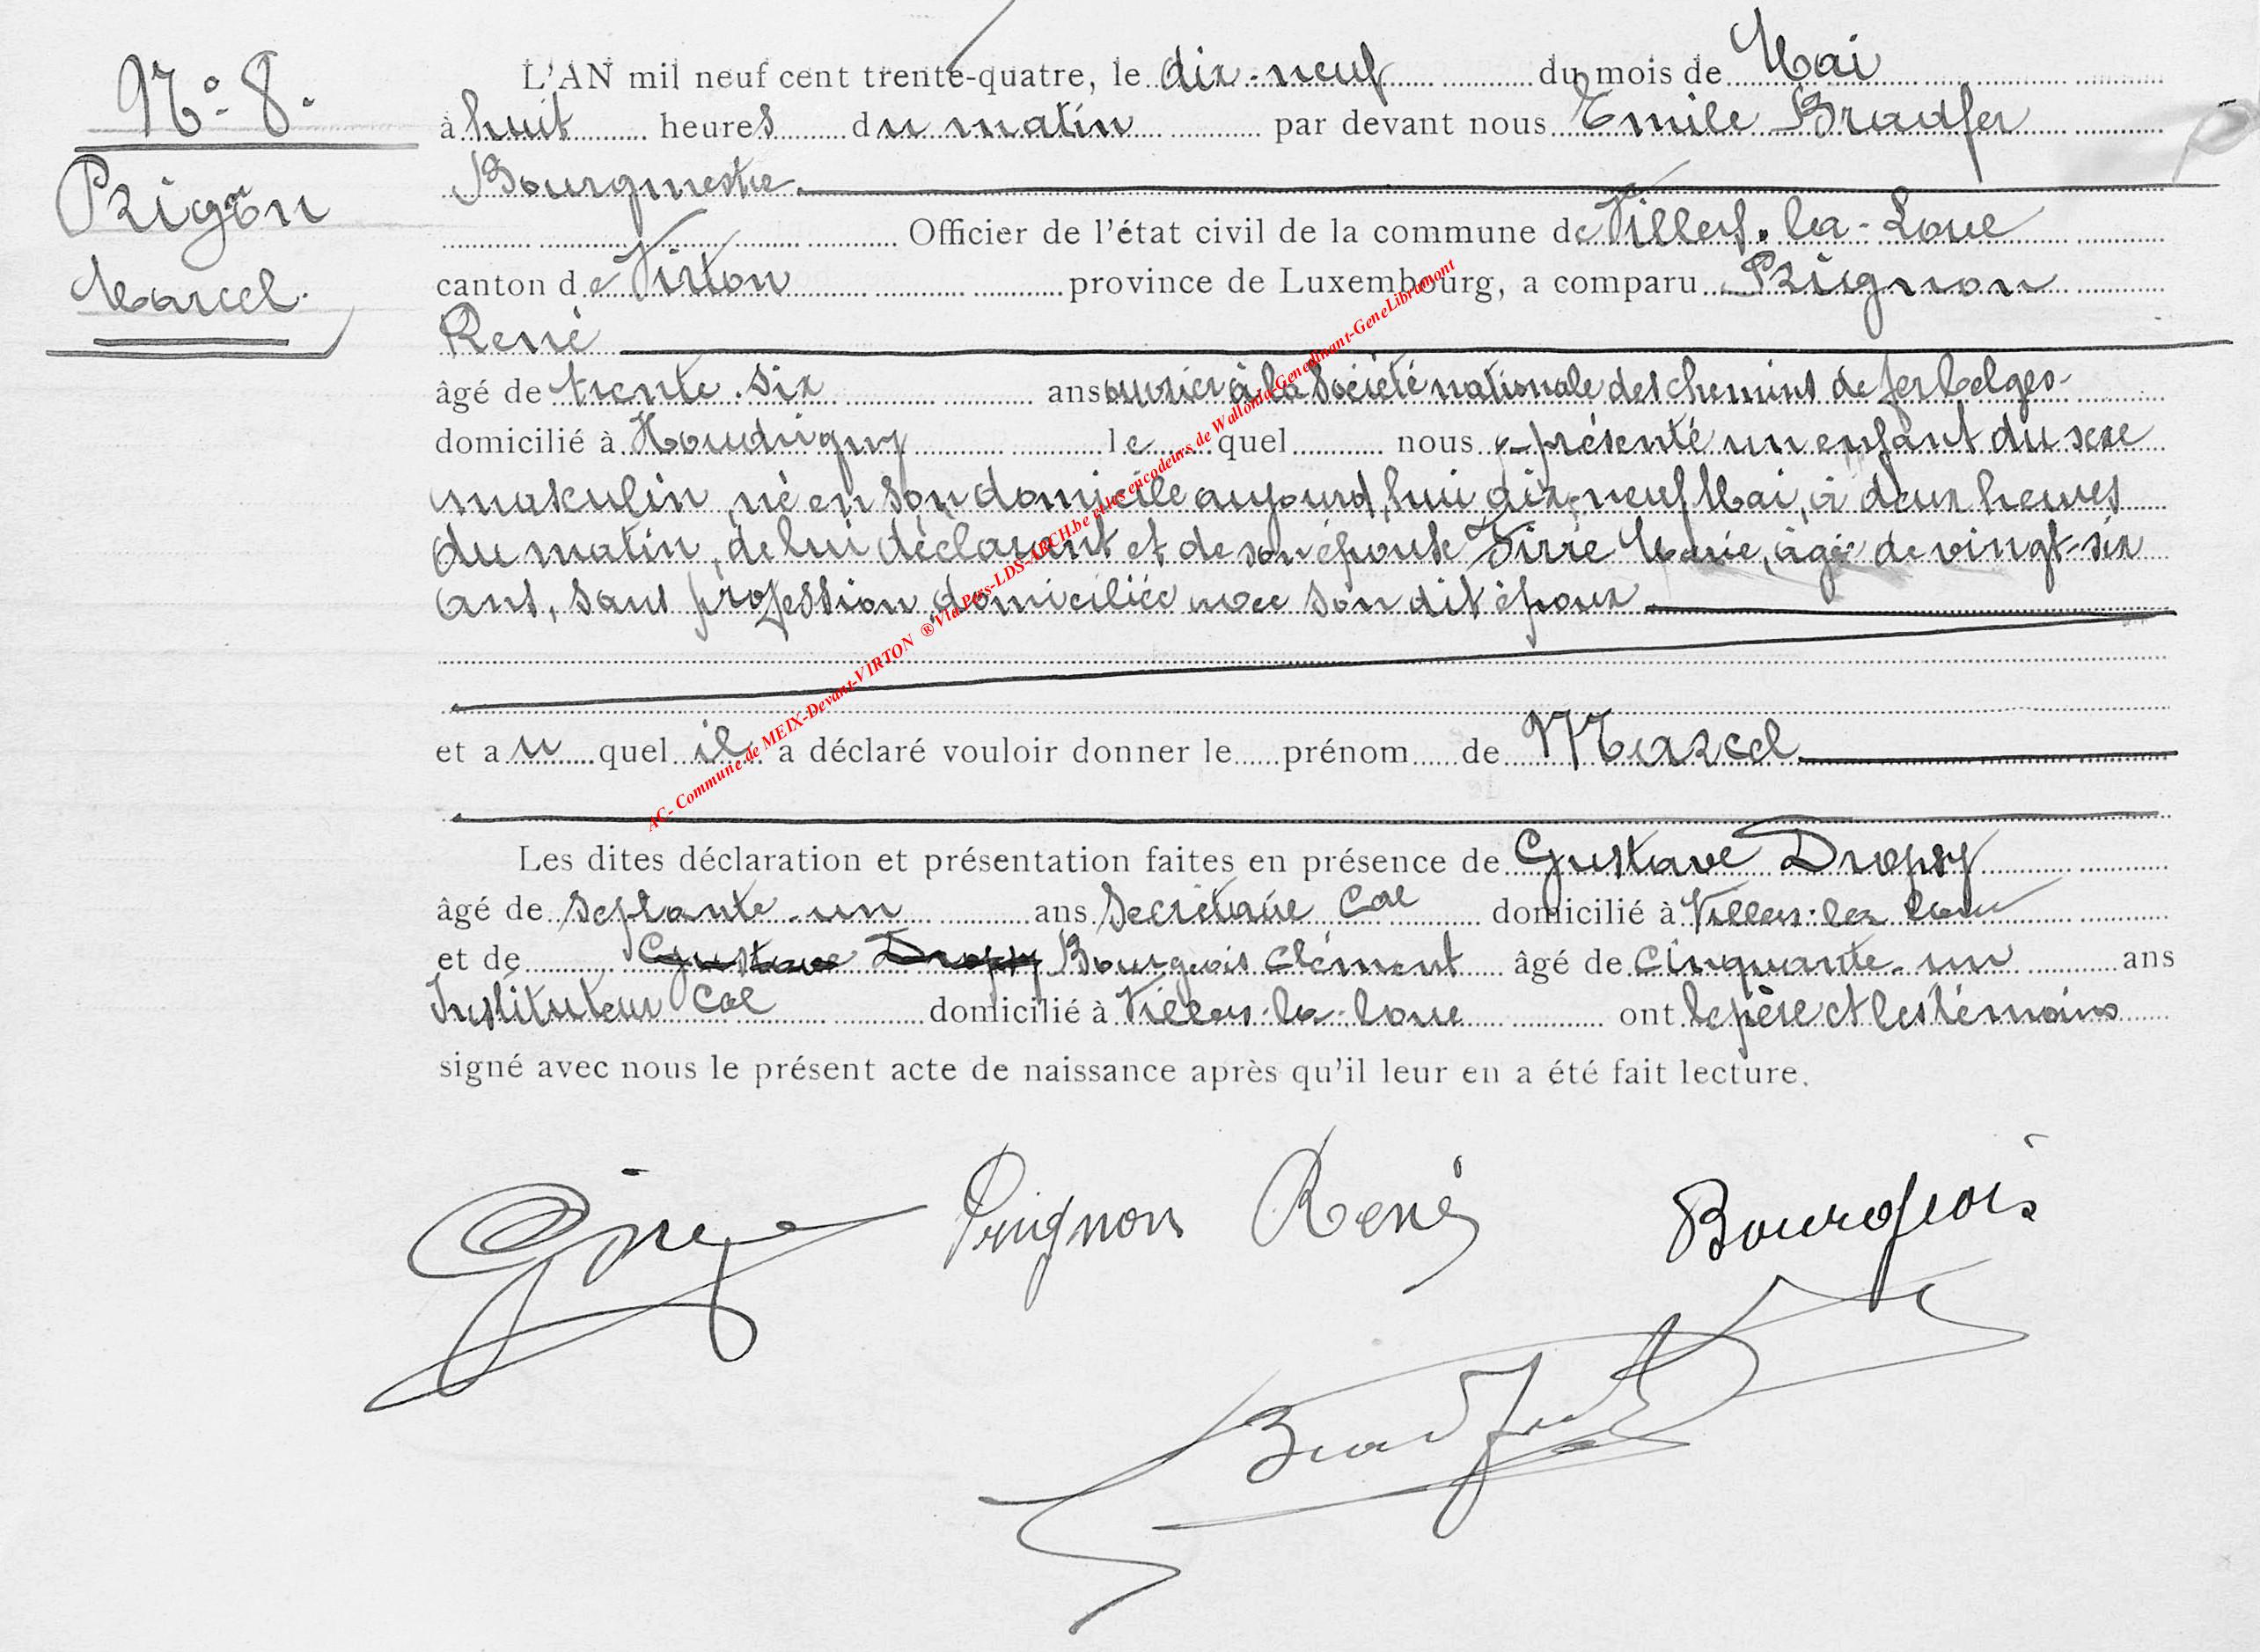 N° 8.
Prignon
Marcel.
L'AN mil neuf cent trente-quatre, le dix-neuf du mois de Mai
à huit heures du matin par devant nous Emile Bradfer
Bourgmestre.
Officier de l'état civil de la commune de Villers-la-Loue
canton de Virton province de Luxembourg, a comparu Prignon
René
âgé de trente-six ans ouvrier à la Société nationale des chemins de fer belges
domicilié à Houdrigny lequel nous a présenté un enfant du sexe
masculin, né en son domicile aujourd'hui dix-neuf Mai, à deux heures
du matin, de lui déclarant et de son épouse Marie, âgée de vingt-six
ans, sans profession, domiciliée avec son dit époux.
et auquel il a déclaré vouloir donner le prénom de Marcel
Les dites déclaration et présentation faites en présence de Gustave Dropsy
âgé de septante-un ans Secrétaire Cal domicilié à Villers-la-Loue
et de Gustave Dropsy Bourgeois Clément âgé de cinquante-un ans
Instituteur Cal domicilié à Villers-la-Loue ont le père et les témoins
signé avec nous le présent acte de naissance après qu'il leur en a été fait lecture.
Prignon René Bourgeois
Bradfer
AC- Commune de MEIX-Devant-VIRTON ®Via Pres-LDS-ARCH.be et les encodeurs de Wallonia-Genedinant-GeneLibramont